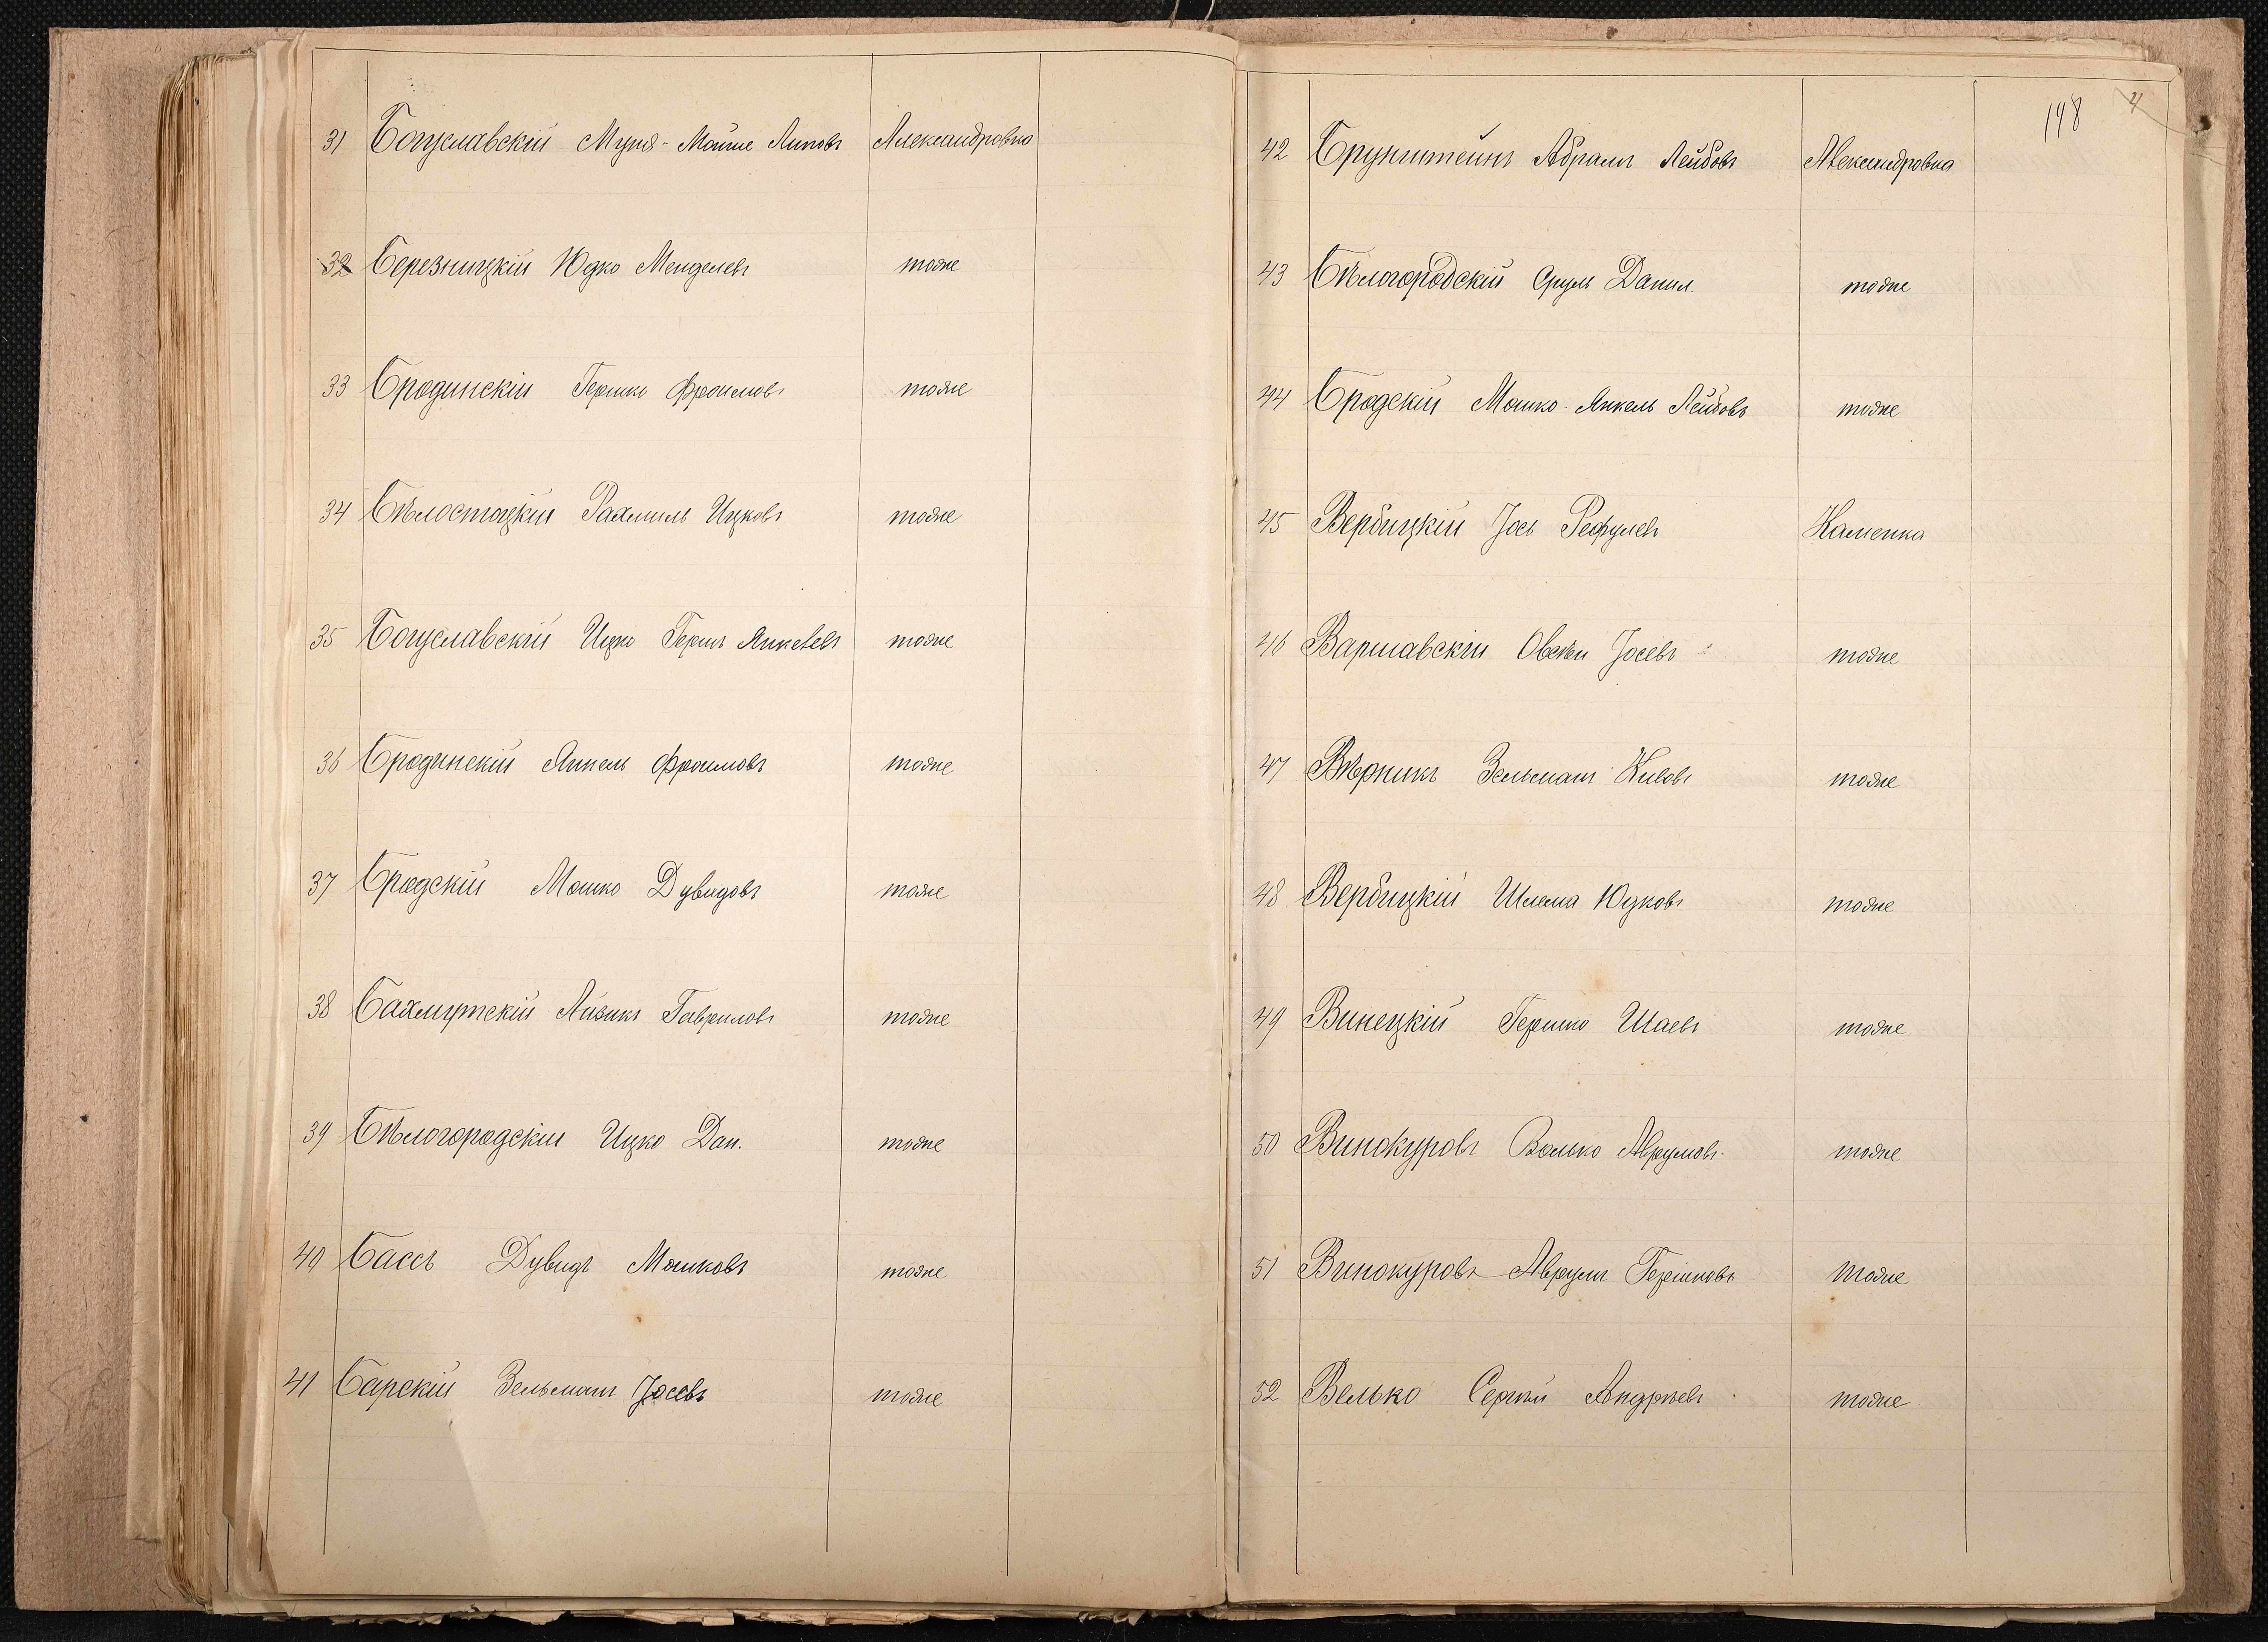 31 Богуславскій Муня-Мойше Липовъ Александровка
32 Березницкій Юдко Менделевъ тоже
33 Бродинскій Гершко Фроимовъ тоже
34 Бѣлостоцкій Рахмиль Ицковъ тоже
35 Богуславскій Ицко Гершъ Янкелевъ тоже
36 Бродинскій Янкель Фроимовъ тоже
37 Бродскій Мошко Дувидовъ тоже
38 Бахмутскій Айзикъ Гавриловъ тоже
39 Бѣлогородскій Ицко Дан. тоже
40 Бассъ Дувидъ Мошковъ тоже
41 Барскій Зельманъ Іосевъ тоже
148
42 Брунштейнъ Абрамъ Лейбовъ Александровка
43 Бѣлогородскій Сруль Данил. тоже
44 Бродскій Мошко-Янкель Лейбовъ тоже
45 Вербицкій Іось Рефулевъ Каменка
46 Варшавскій Овсѣй Іосевъ тоже
47 Вѣрникъ Зельманъ Кивовъ тоже
48 Вербицкій Шлема Юдковъ тоже
49 Винецкій Гершко Шаевъ тоже
50 Винокуровъ Волько Аврумовъ тоже
51 Винокуровъ Аврумъ Гершковъ тоже
52 Велько Сергѣй Андрѣевъ тоже